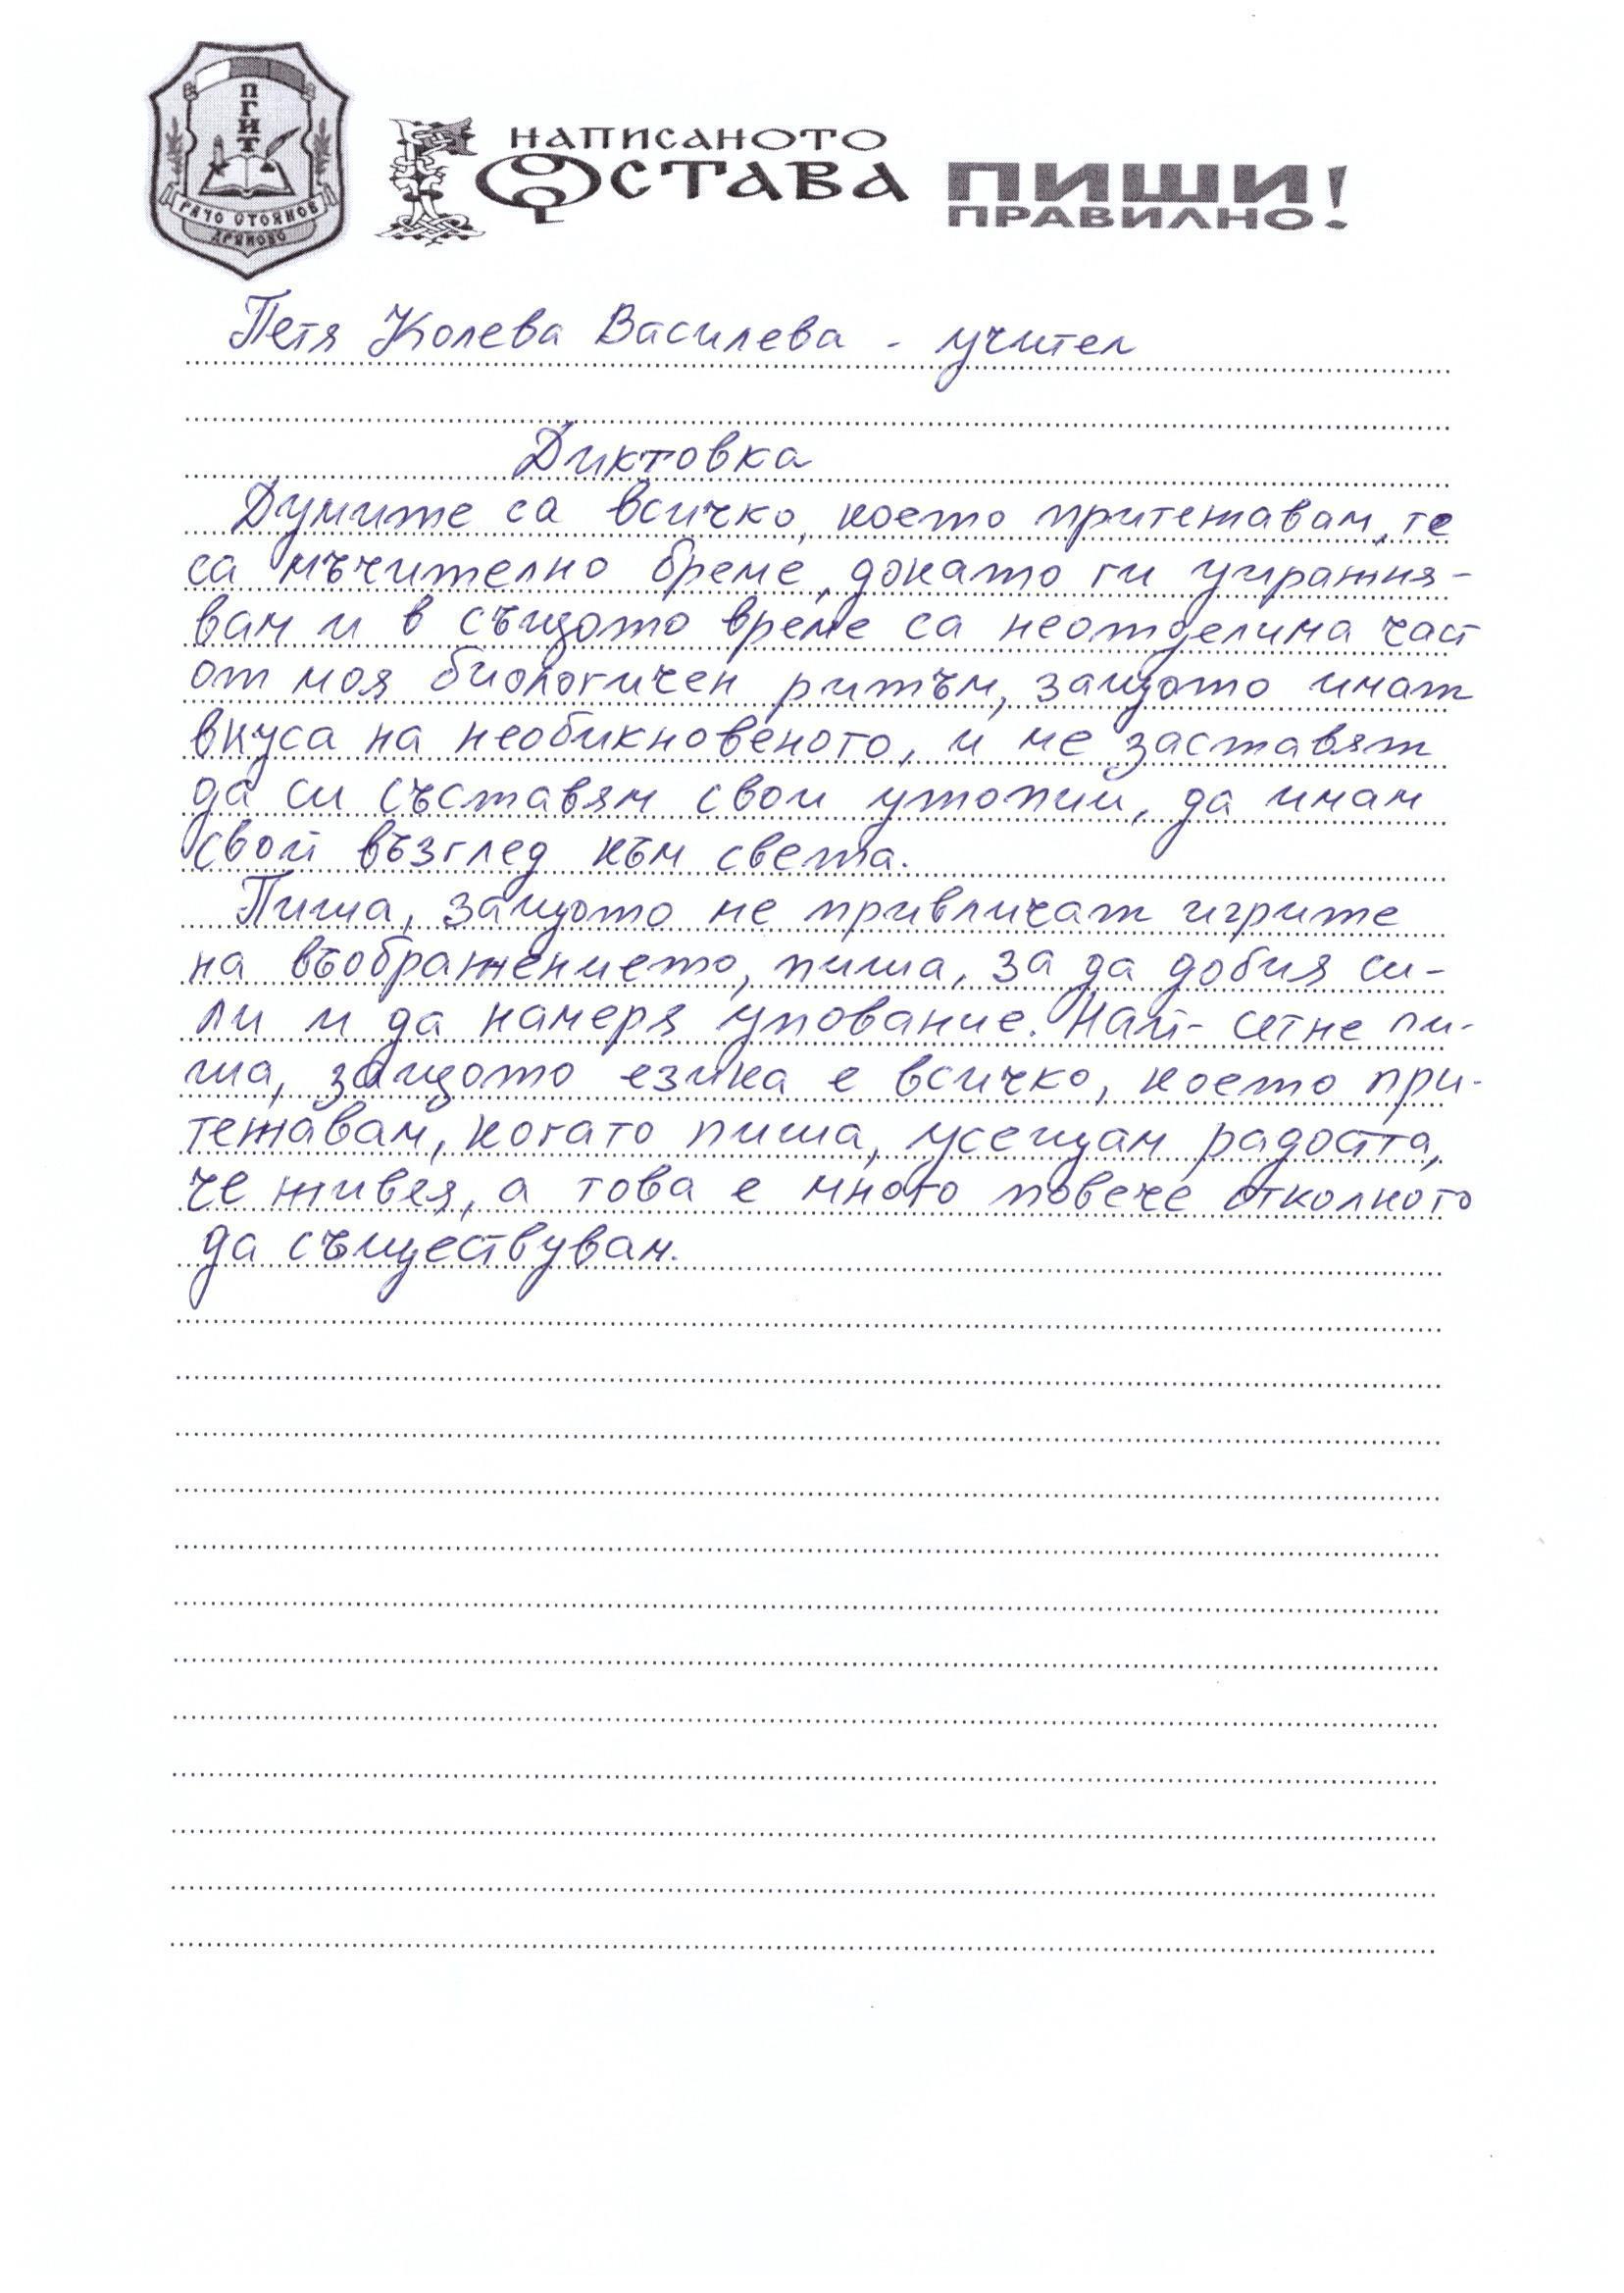 ПГИТ
РАЧО СТОЯНОВ
ДРЯНОВО
НАПИСАНОТО
ОСТАВА
ПИШИ
ПРАВИЛНО!
Петя Колева Василева - учител
Диктовка
Думите са всичко, което притежавам, те
са мъчително бреме, докато ги упражня-
вам и в същото време са неотделима част
от моя биологичен ритъм, защото имат
вкуса на необикновеното, и ме заставят
да си съставям свои утопии, да имам
свой възглед към света.
Пиша, защото ме привличат игрите
на въображението, пиша, за да добия си-
ли и да намеря упование. Най-сетне пи-
ша, защото езика е всичко, което при-
тежавам, когато пиша, усещам радостта,
че живея, а това е много повече отколкото
да съществувам.